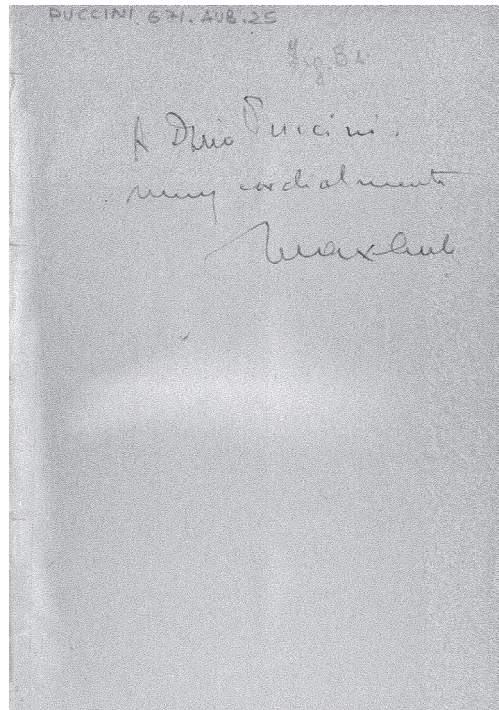 PUCCINI. 671. AUB. 25
Fig. 8
A Dario Puccini.
muy cordialmente
Max Aub